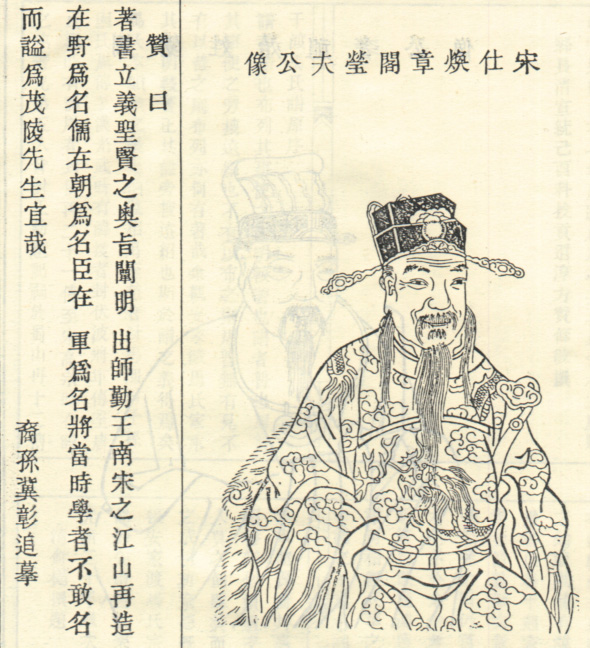 宋仕煥章閣瑩夫公像
贊曰
著書立義聖賢之奧旨闡明 出師勤王南宋之江山再造
在野爲名儒在朝爲名臣在 軍爲名將當時學者不敢名
而謚爲茂陵先生宜哉
裔孫冀彰追摹